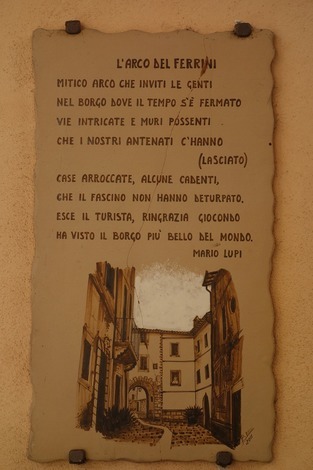 L'ARCO DEL FERRINI
MITICO ARCO CHE INVITI LE GENTI
NEL BORGO DOVE IL TEMPO S'È FERMATO
VIE INTRICATE E MURI POSSENTI
CHE I NOSTRI ANTENATI C'HANNO
(LASCIATO)
CASE ARROCCATE, ALCUNE CADENTI,
CHE IL FASCINO NON HANNO DETURPATO.
ESCE IL TURISTA, RINGRAZIA GIOCONDO
HA VISTO IL BORGO PIÙ BELLO DEL MONDO.
MARIO LUPI